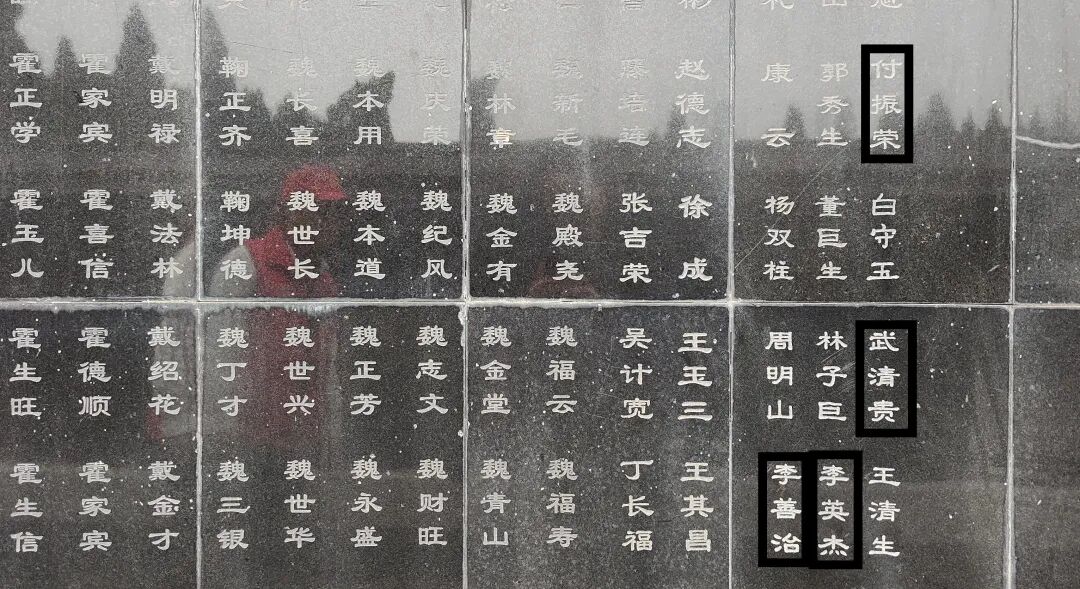 付振荣
白守五
武清贵
王清生
郭秀生
董巨生
林子巨
李英杰
康云
杨双柱
周明山
李善治
赵德志
徐成
王玉三
王其昌
滕培连
张吉荣
吴计宽
丁长福
魏新毛
魏殿尧
魏福云
魏福寿
魏林章
魏金有
魏金堂
魏青山
魏庆荣
魏纪风
魏志文
魏财旺
魏本用
魏本道
魏正芳
魏永盛
魏长喜
魏世长
魏世兴
魏世华
鞠正齐
鞠坤德
魏丁才
魏三银
戴明禄
戴法林
戴绍花
戴金才
霍家宾
霍喜信
霍德顺
霍家宾
霍正学
霍玉儿
霍生旺
霍生信